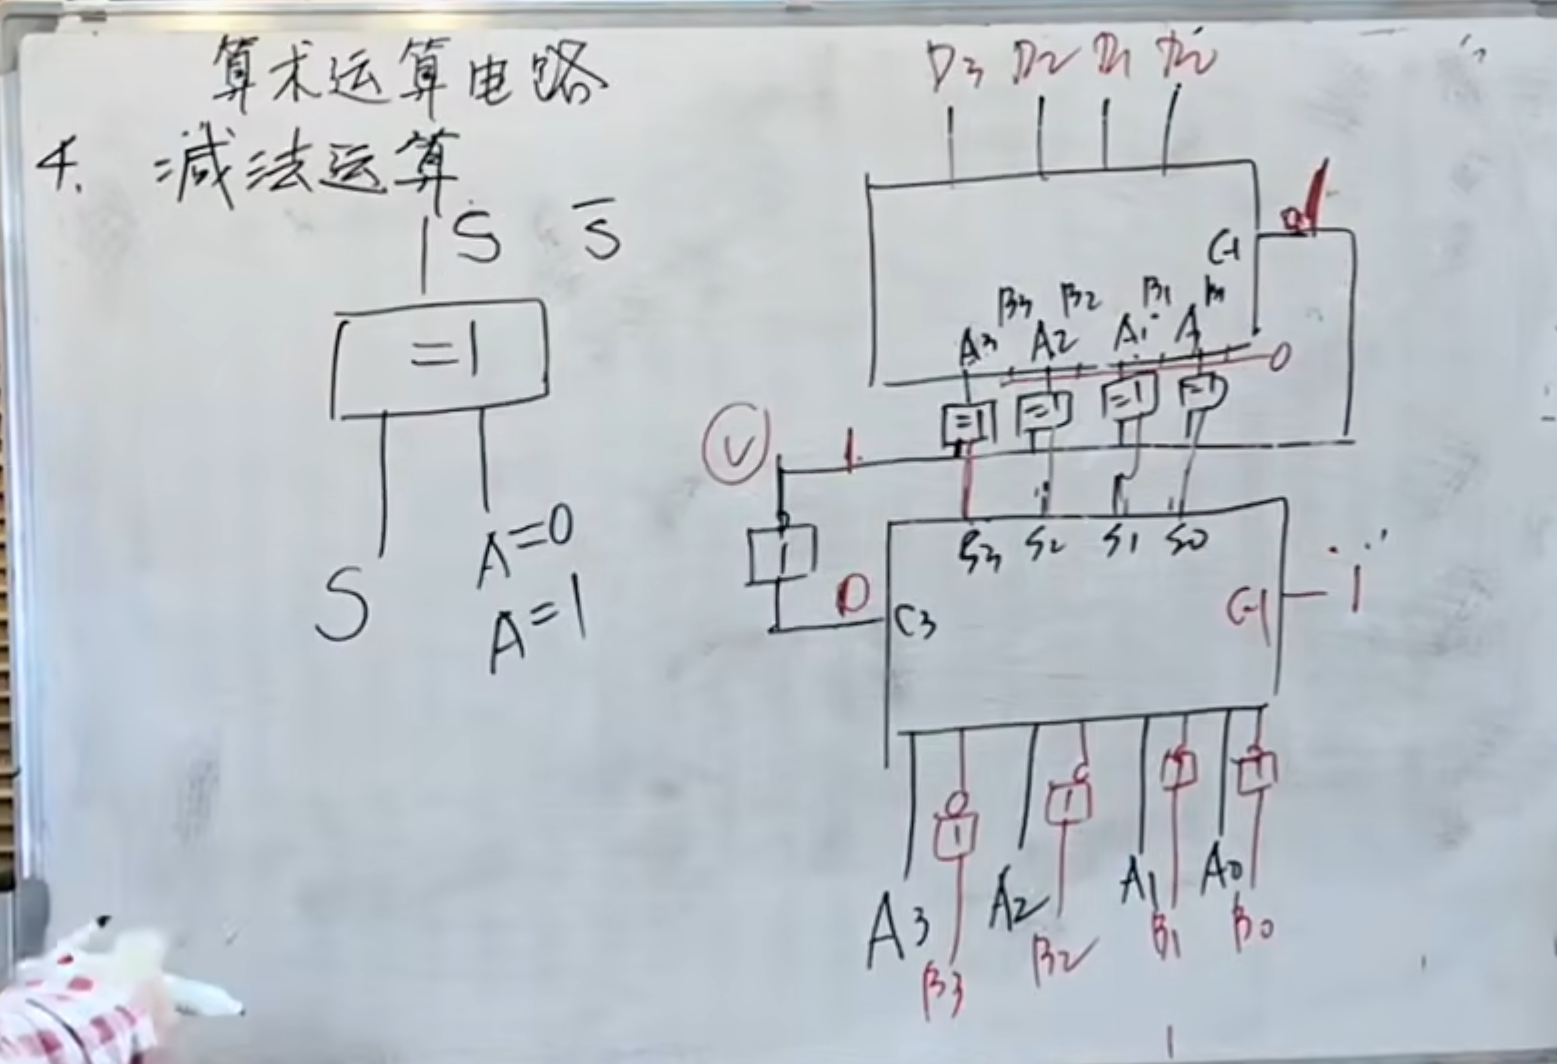 算术运算电路
4. 减法运算
S S̄
=1
S
A=0
A=1
D3 D2 D1
C-1
B3 B2 B1
A3 A2 A1 A
0
=1 =1 =1 =1
V
1
1
0
S3 S2 S1 S0
C3
C-1
1
1 1 1 1
A3 A2 A1 A0
B3 B2 B1 B0